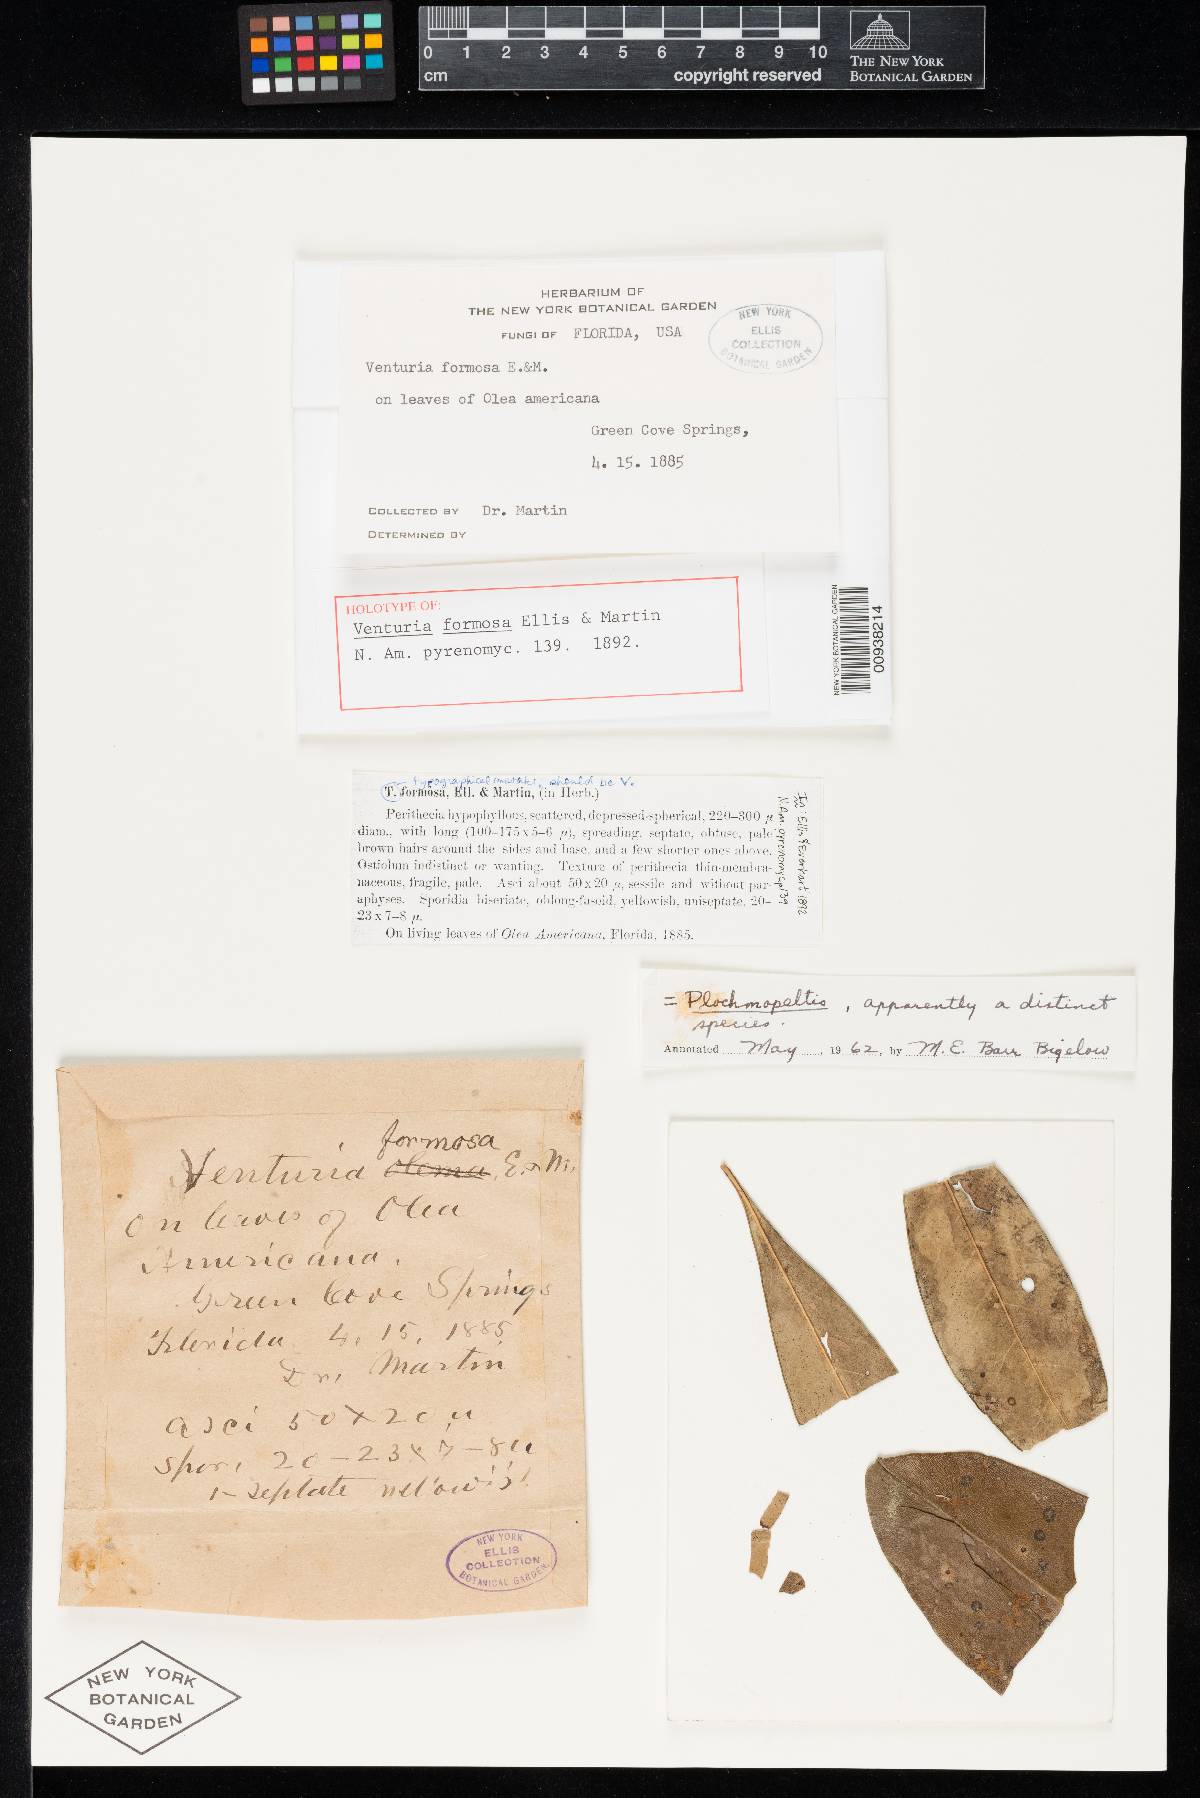 0 1 2 3 4 5 6 7 8 9 10
cm
copyright reserved
THE NEW YORK
BOTANICAL GARDEN
HERBARIUM OF
THE NEW YORK BOTANICAL GARDEN
FUNGI OF FLORIDA, USA
NEW YORK
ELLIS
COLLECTION
BOTANICAL GARDEN
Venturia formosa E.&M.
on leaves of Olea americana
Green Cove Springs,
4. 15. 1885
COLLECTED BY Dr. Martin
DETERMINED BY
HOLOTYPE OF:
Venturia formosa Ellis & Martin
N. Am. pyrenomyc. 139. 1892.
NEW YORK BOTANICAL GARDEN
00938214
typographical mistake, should be V.
T. formosa, Ell. & Martin, (in Herb.)
Perithecia hypophyllous, scattered, depressed-spherical, 220–300 µ
diam., with long (100–175 x 5–6 µ), spreading, septate, obtuse, pale
brown hairs around the sides and base, and a few shorter ones above.
Ostiolum indistinct or wanting. Texture of perithecia thin-membra-
naceous, fragile, pale. Asci about 50 x 20 µ, sessile and without par-
aphyses. Sporidia biseriate, oblong-fusoid, yellowish, uniseptate, 20–
23 x 7–8 µ.
On living leaves of Olea Americana, Florida, 1885.
In: Ellis & Everhart 1892
N. Am. pyrenomyc. p 139
= Plochmopeltis, apparently a distinct
species.
Annotated May, 1962, by M. E. Barr Bigelow
formosa
Venturia oleina, E & M.
On leaves of Olea
Americana.
Green Cove Springs
Florida 4, 15, 1885
Dr. Martin
Asci 50 x 20 µ
Spor, 20–23 x 7–8 µ
1-septate
NEW YORK
ELLIS
COLLECTION
BOTANICAL GARDEN
NEW YORK
BOTANICAL
GARDEN